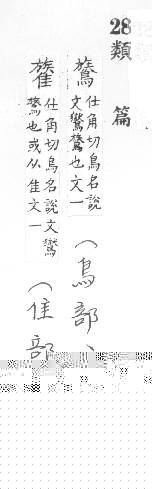 28類 篇
鷟
仕角切鳥名說
文鸑鷟也文一
(鳥部、
仕角切鳥名說文鸑
鷟也或从隹文一
(隹部